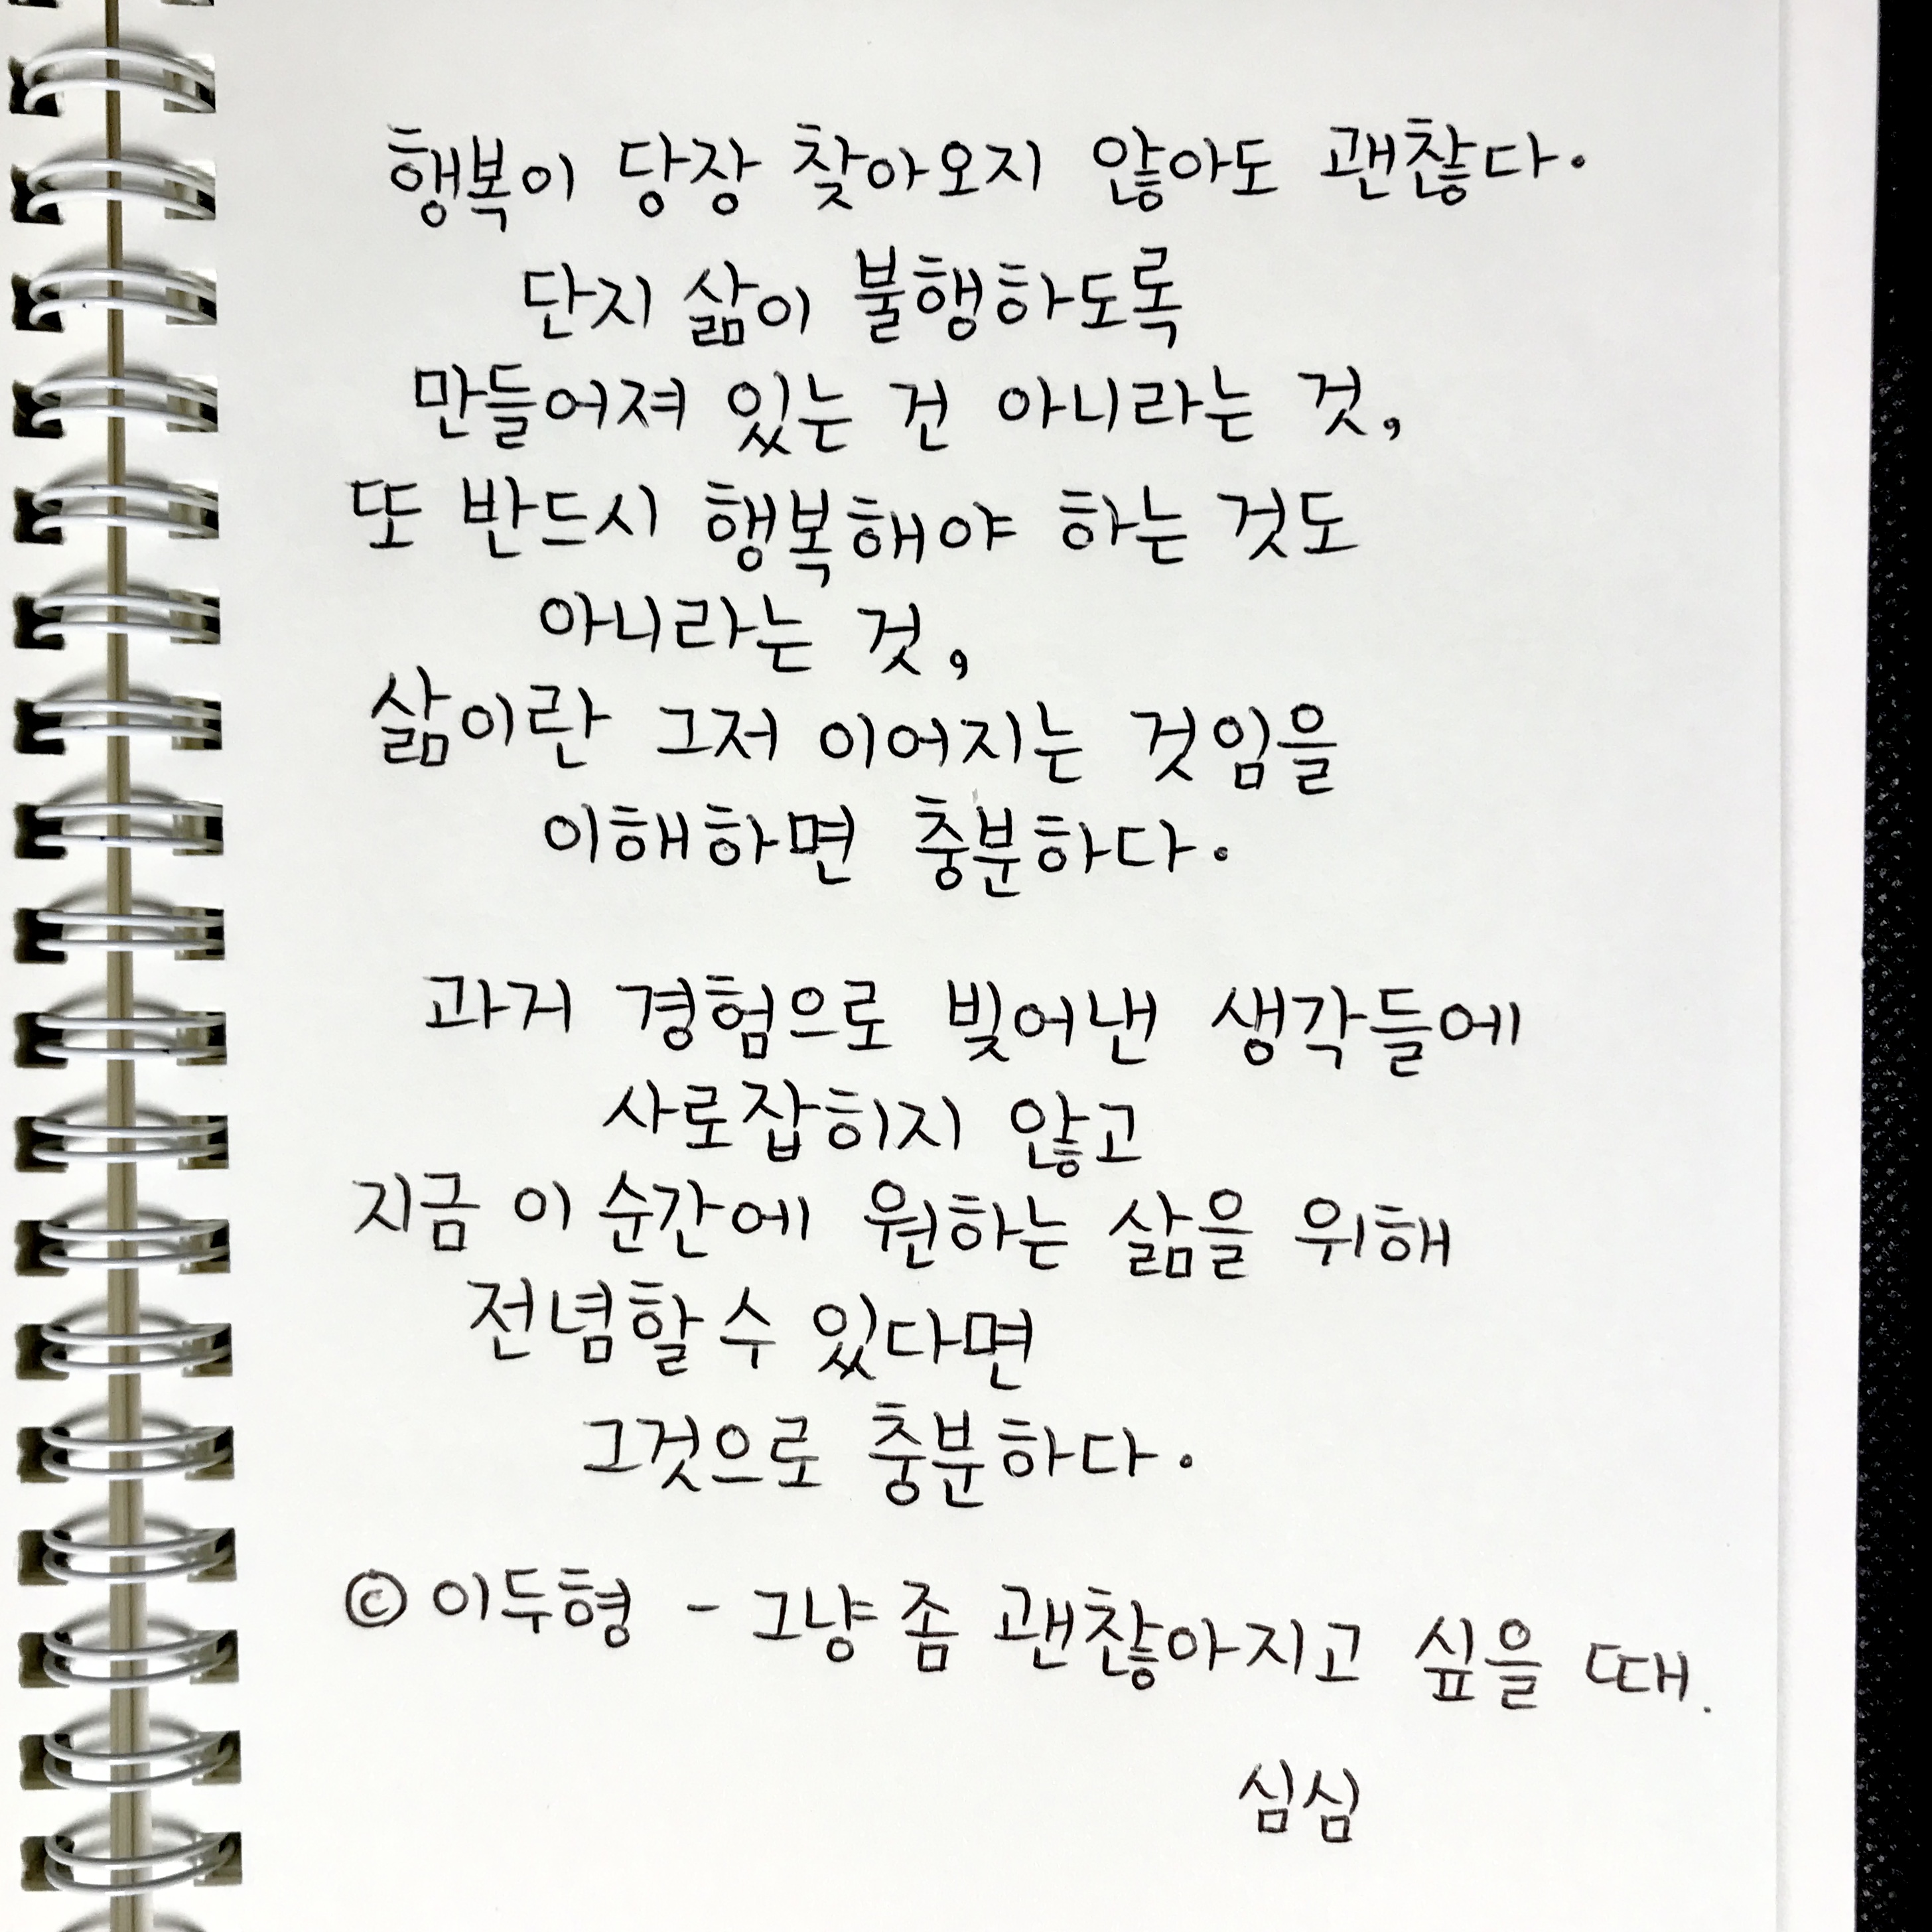 행복이 당장 찾아오지 않아도 괜찮다.
단지 삶이 불행하도록
만들어져 있는 건 아니라는 것,
또 반드시 행복해야 하는 것도
아니라는 것,
삶이란 그저 이어지는 것임을
이해하면 충분하다.
과거 경험으로 빚어낸 생각들에
사로잡히지 않고
지금 이 순간에 원하는 삶을 위해
전념할 수 있다면
그것으로 충분하다.
© 이두형 - 그냥 좀 괜찮아지고 싶을 때.
심심